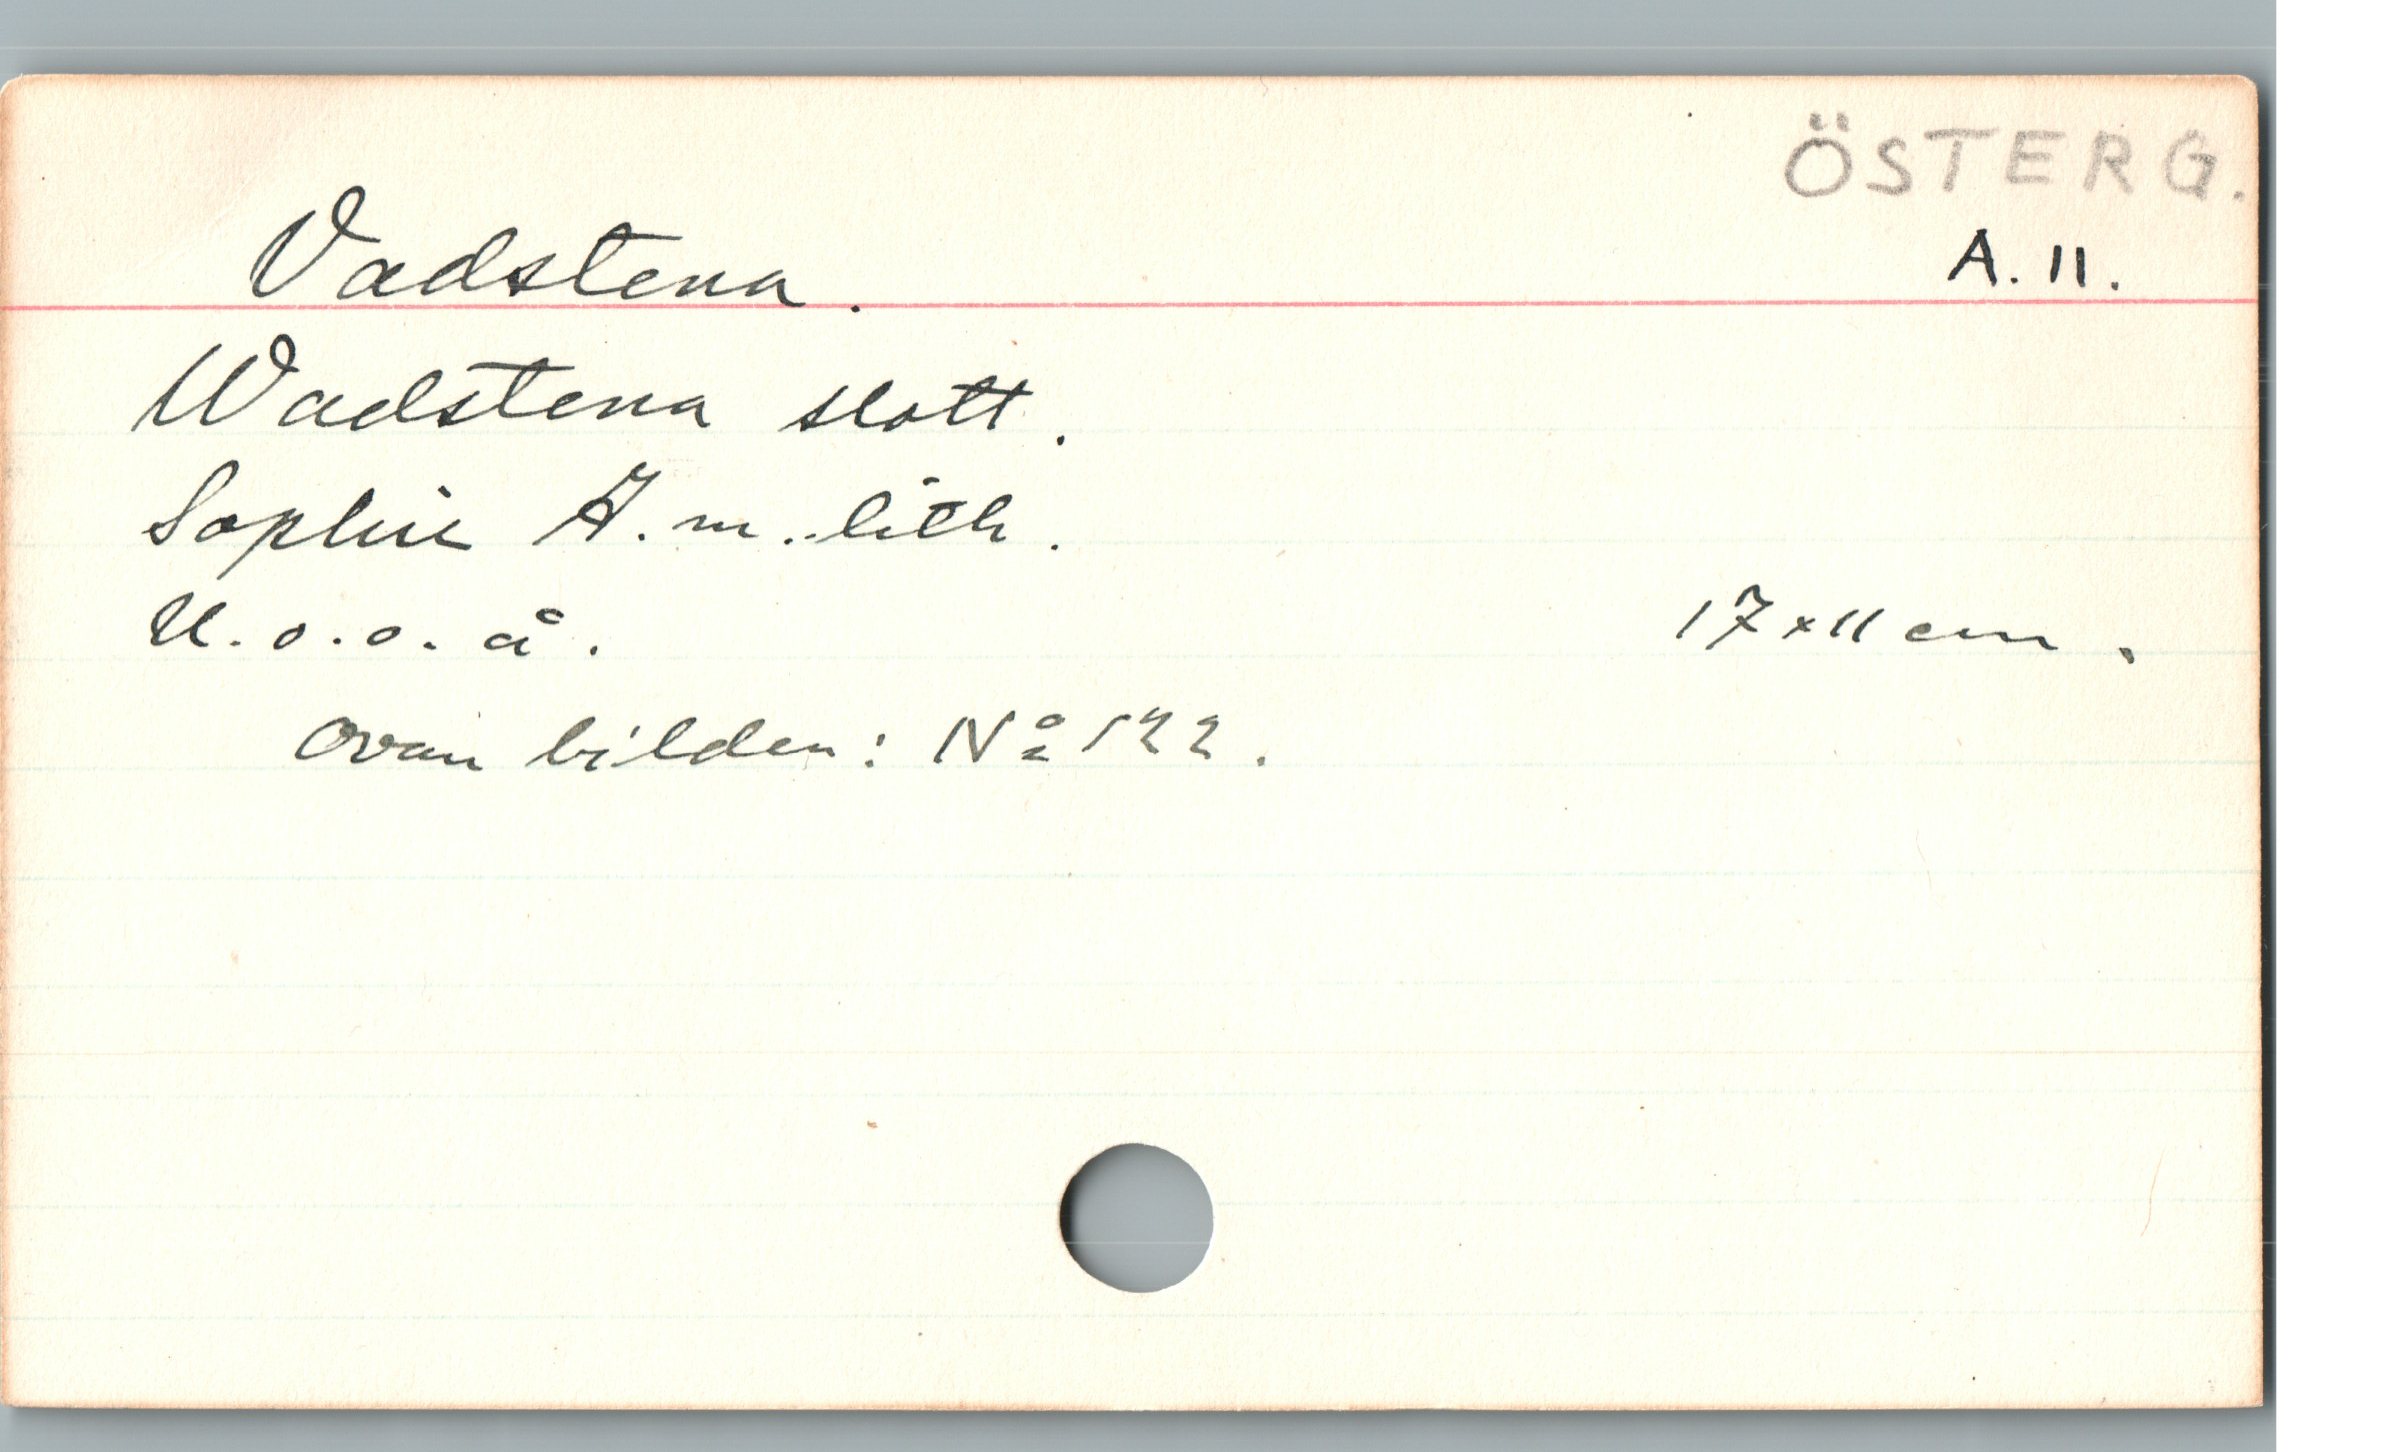 ÖSTERG.
Vadstena. A. 11.
Wadstena slott.
Sophie A. m. lith.
U. o. o. å. 17×11 cm.
Ovan bilden: Nº 122.